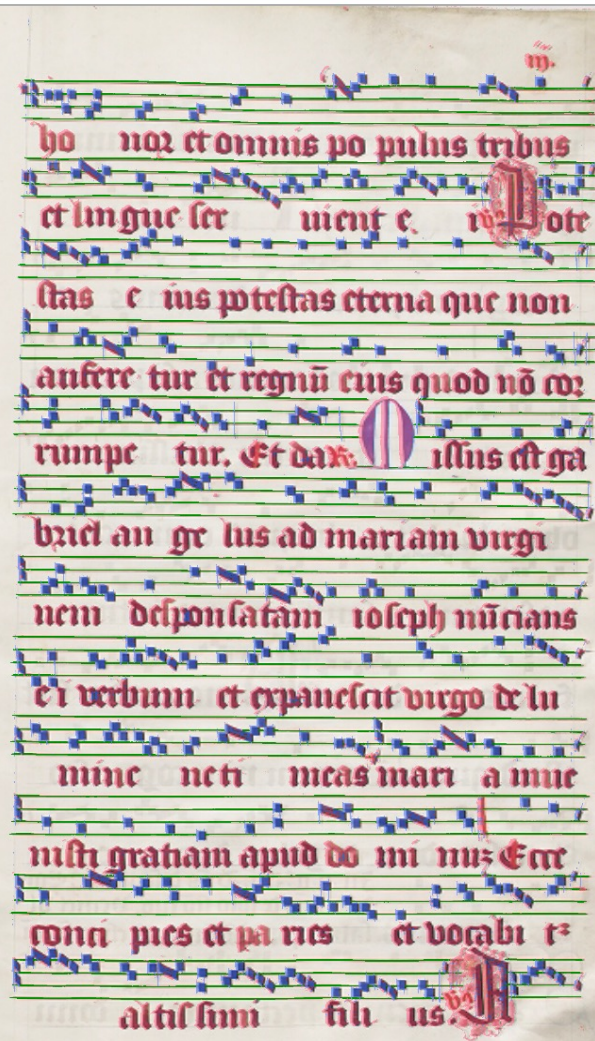 m.
ho noꝛ et omnis po pulus tribus
et lingue ser uient e. i ℣. Pote
stas e ius potestas eterna que non
aufere tur et regnū eius quod nō coꝛ
rumpe tur. Et da ℟. Missus est ga
bꝛiel an ge lus ad mariam virgi
nem desponsatam ioseph nūcians
e i verbum et expauescit virgo de lu
mine ne ti meas mari a inue
nisti gratiam apud do mi nuꝫ Ecce
conci pies et pa ries et vocabi tꝛ
altissimi fili us. ℣.